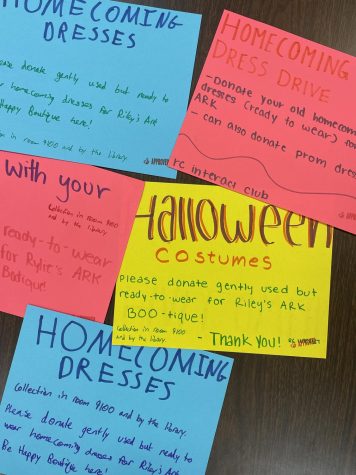 HOMECOMING
DRESSES
Please donate gently used but ready to
wear homecoming dresses for Riley's Ark
Be Happy Boutique here!
Collection in room 9100 and by the library
APPROVED
HOMECOMING
DRESS DRIVE
- Donate your old homecoming
dresses (ready to wear)
ARK
- can also donate prom dresses
interact club
with your
Collection in room 9100
and by the library
ready-to-wear
for Rylie's ARK
Botique!
Halloween
COSTUMES
Please donate gently used but
ready-to-wear for Riley's ARK
BOO-tique!
Collection in room 9100
and by the library.
- Thank You!
APPROVED
HOMECOMING
DRESSES
Collection in room 9100 and by the library.
Please donate gently used but ready to
wear homecoming dresses for Riley's Ark
Be Happy Boutique here!